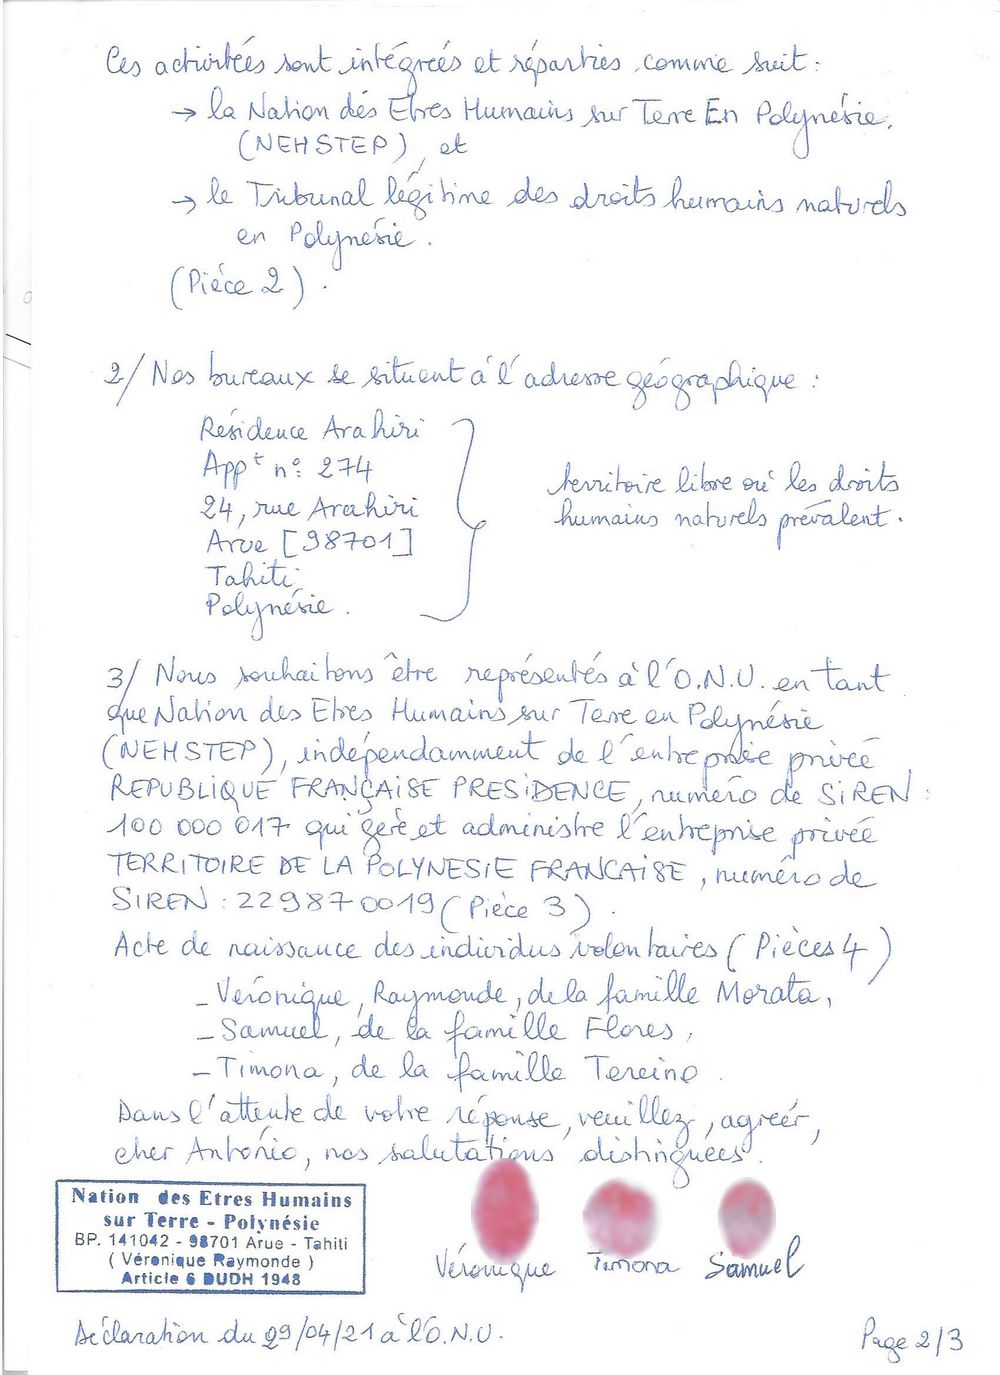 Ces activitées sont intégrées et réparties comme suit :
→ la Nation des Etres Humains sur Terre En Polynésie.
(NEHSTEP), et
→ le Tribunal légitime des droits humains naturels
en Polynésie.
(Pièce 2).
2/ Nos bureaux se situent à l'adresse géographique :
Résidence Arahiri
Appt n°: 274
24, rue Arahiri
Arue [98701]
Tahiti
Polynésie.
territoire libre où les droits
humains naturels prévalent.
3/ Nous souhaitons être représentés à l'O.N.U. en tant
que Nation des Etres Humains sur Terre en Polynésie
(NEHSTEP), indépendamment de l'entreprise privée
REPUBLIQUE FRANÇAISE PRESIDENCE, numéro de SIREN :
100 000 017 qui gère et administre l'entreprise privée
TERRITOIRE DE LA POLYNESIE FRANCAISE, numéro de
SIREN : 229870019 (Pièce 3).
Acte de naissance des individus volontaires (Pièces 4)
- Véronique, Raymonde, de la famille Morata,
- Samuel, de la famille Flores,
- Timona, de la famille Tereino.
Dans l'attente de votre réponse, veuillez, agréer,
cher António, nos salutations distinguées.
Nation des Etres Humains
sur Terre - Polynésie
BP. 141042 - 98701 Arue - Tahiti
( Véronique Raymonde )
Article 6 DUDH 1948
Véronique Timona Samuel
Déclaration du 29/04/21 à l'O.N.U.
Page 2/3